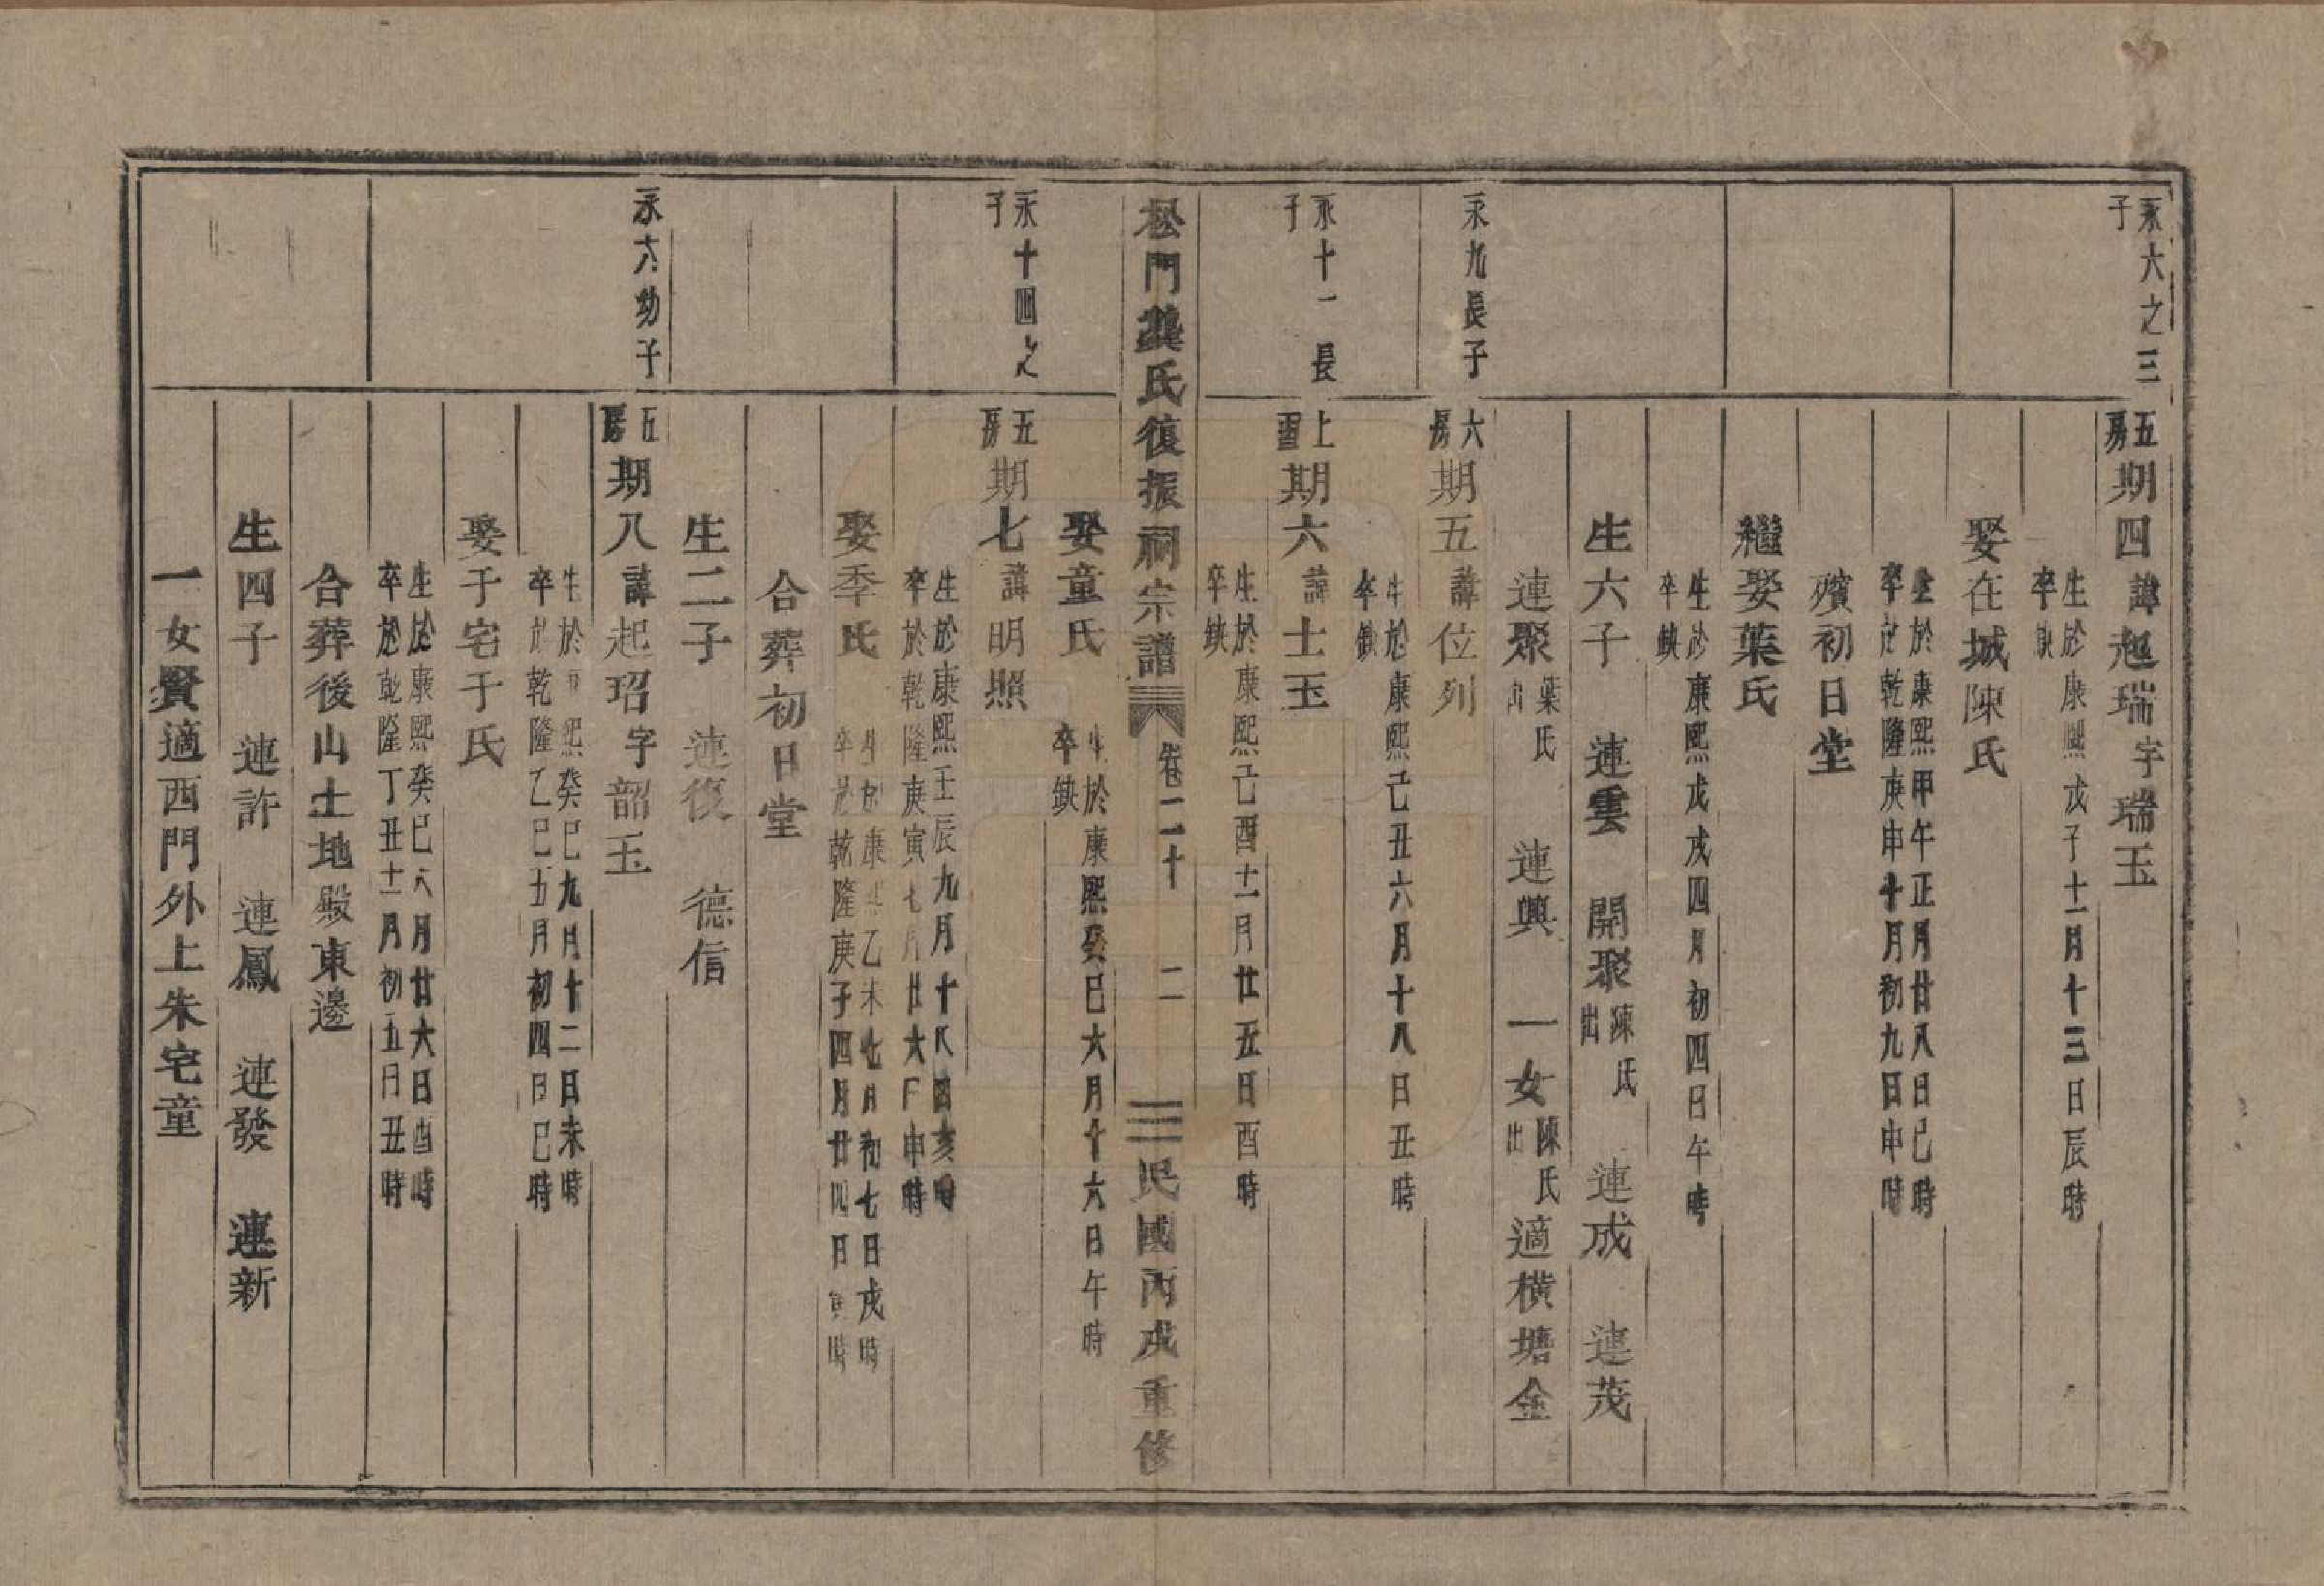 永六之三
子
五
房
期四諱起瑞字瑞玉
生於康熙戊子十二月十三日辰時
卒缺
娶在城陳氏
生於康熙甲午正月廿八日巳時
卒於乾隆庚申十月初九日申時
殯初日堂
繼娶葉氏
生於康熙戊戌四月初四日午時
卒缺
生六子 連雲 開聚 陳氏出 連成 連茂
連聚 葉氏出 連興 一女 陳氏出 適橫塘金
永九長子
六
房
期五諱位列
生於康熙己丑六月十八日丑時
卒缺
永十一長
子
上
宅
期六諱士玉
生於康熙己酉十二月廿五日酉時
卒缺
松門龔氏復振祠宗譜 卷二十 二 民國丙戌重修
娶童氏
生於康熙癸巳六月十六日午時
卒缺
永十四之
子
五
房
期七諱明照
生於康熙壬辰九月十八日亥時
卒於乾隆庚寅七月廿六日申時
娶季氏
生於康熙乙未七月初七日戌時
卒於乾隆庚子四月廿四日寅時
合葬初日堂
生二子 連復 德信
永六幼子
五
房
期八諱起玿字韶玉
生於康熙癸巳九月十二日未時
卒於乾隆乙巳五月初四日巳時
娶于宅于氏
生於康熙癸巳六月廿六日酉時
卒於乾隆丁丑十二月初五日丑時
合葬後山土地殿東邊
生四子 連許 連鳳 連發 連新
一女賢適西門外上朱宅童